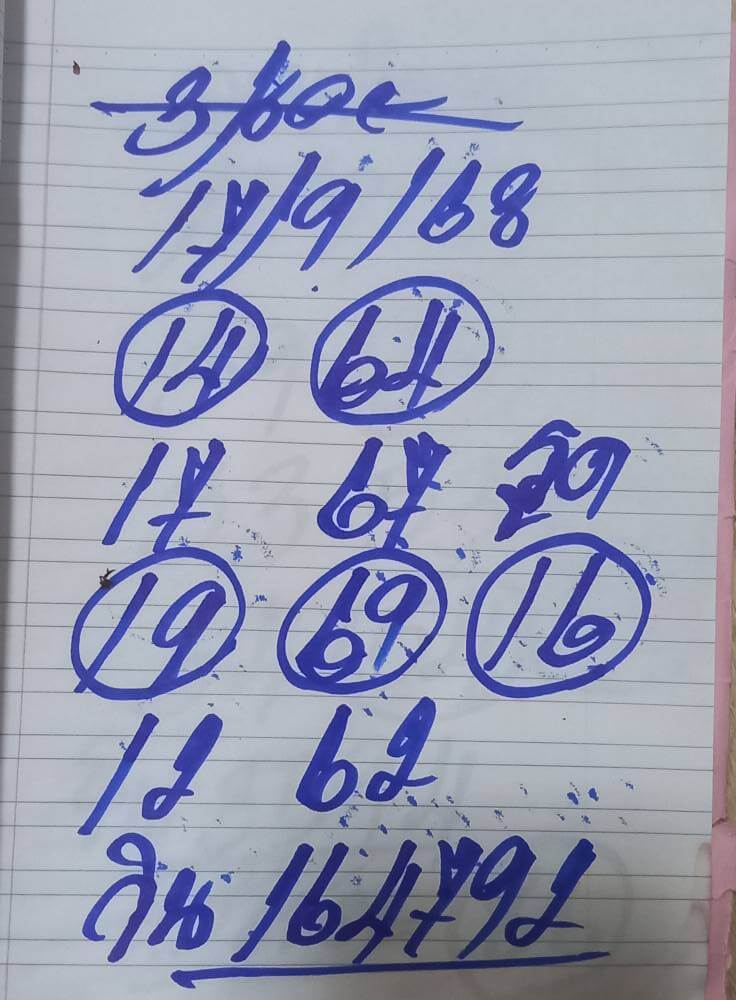 17/9/68
14 64
17 67
19 69 16
12 62
วิน 164792